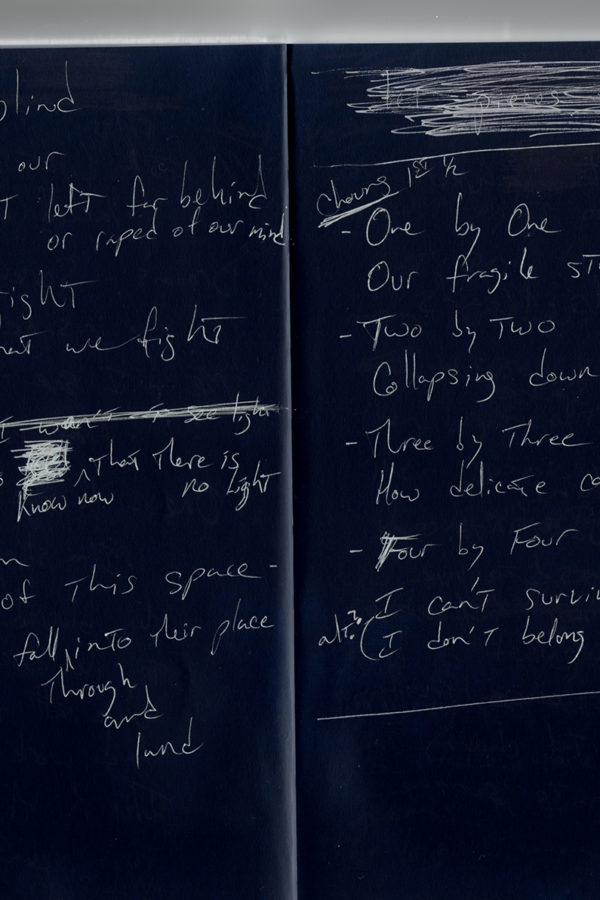 blind
our
left far behind
or raped of our mind
we fight
I won't to see light
that there is
know now no light
of this space -
fall into their place
through
and
land
pieces
chorus 1st 1/2
- One by One
Our fragile
- Two by Two
Collapsing down
- Three by Three
How delicate
- Four by Four
I can't
alt? (I don't belong